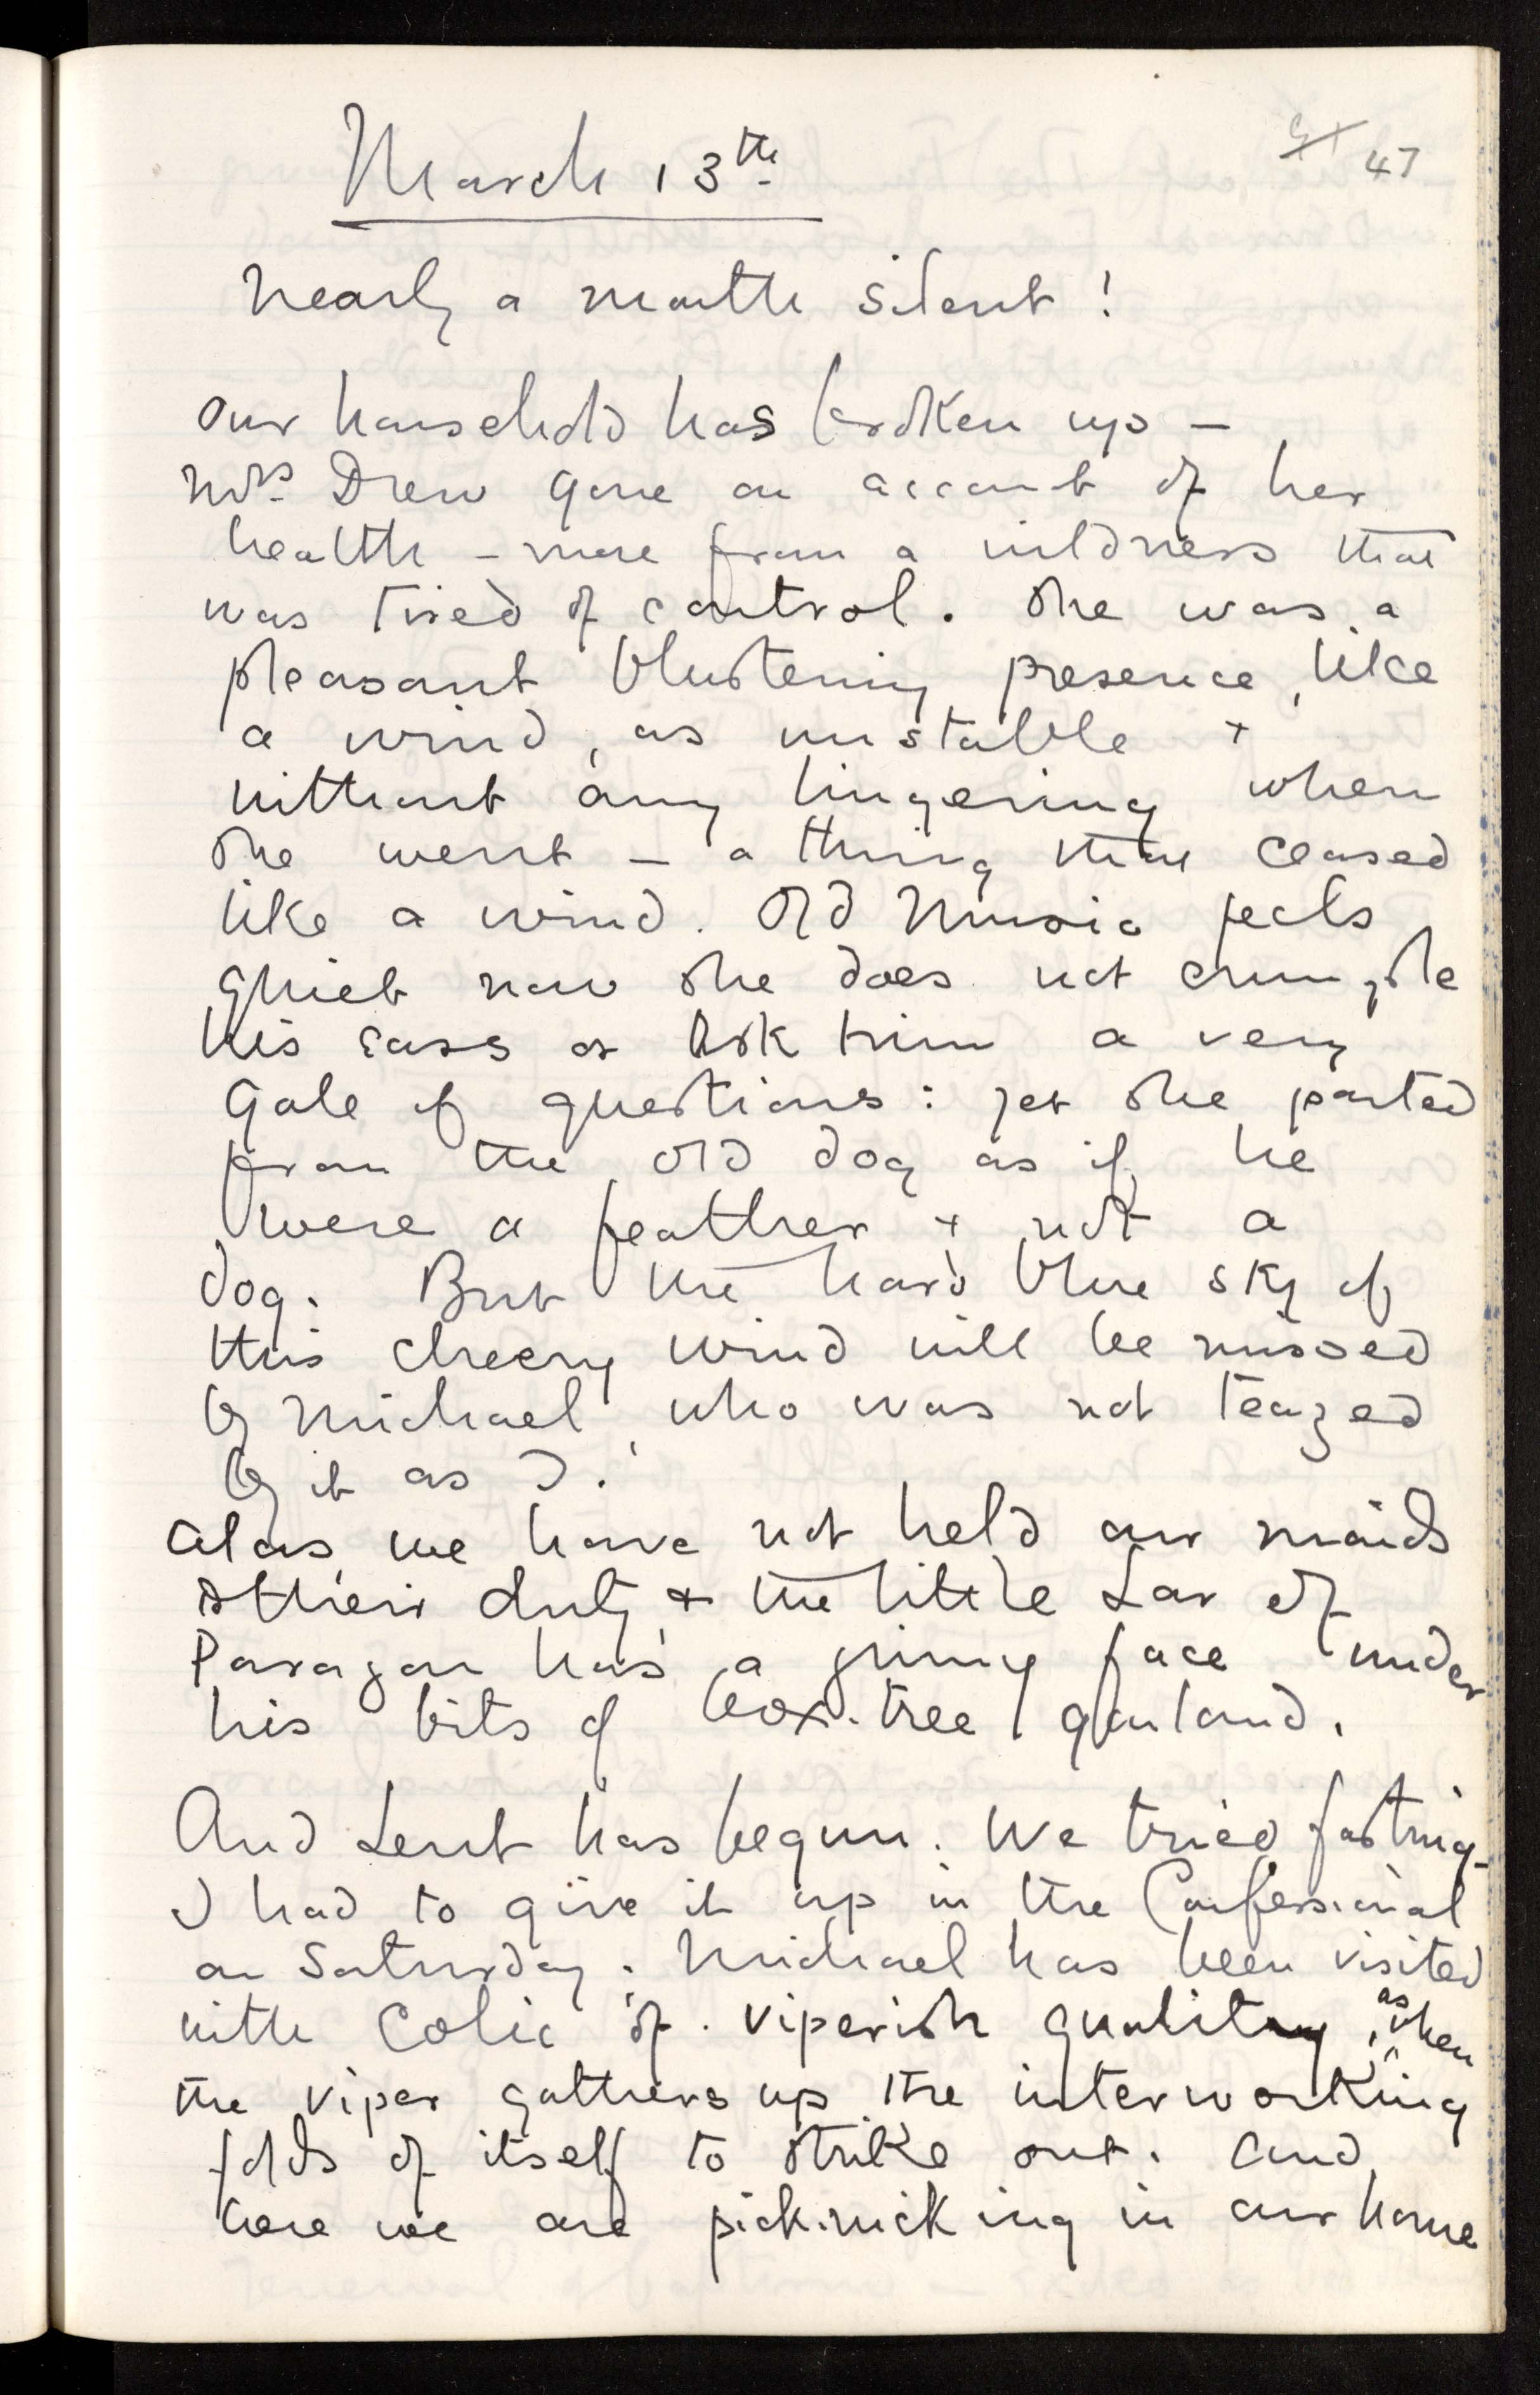 March 13th
47
Nearly a month silent!
Our household has broken up —
Mrs Drew gone on account of her
health — more from a wildness that
was tired of control. She was a
pleasant blustering presence, like
a wind, as unstable +
without any lingering when
she went — a thing that ceased
like a wind. Old Music feels
quiet now she does not crumple
his ears or ask him a very
gale of questions: yet she parted
from the old dog as if he
were a feather + not a
dog. But the hard blue sky of
this cheery wind will be missed
by Michael, who was not teazed
by it as I.
Alas, we have not held our maids
to their duty + the little Lar of
Paragon has a grimy face under
his bits of box-tree garland.
And Lent has begun. We tried fasting –
I had to give it up in the Confessional
on Saturday. Michael has been visited
with colic of viperish quality, as when
the viper gathers up the interworking
folds of itself to strike out. And
here we are pick-nicking in our home